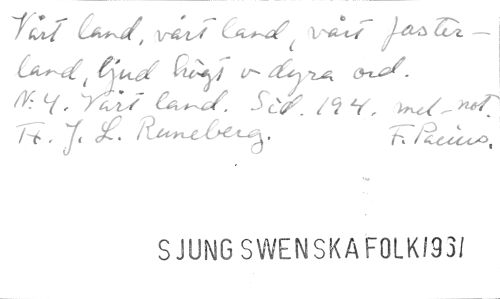 Vårt land, vårt land, vårt foster-
land, ljud högt o dyra ord.
N: 4. Vårt land. Sid. 194. mel-not.
Tx. J. L. Runeberg. F. Pacius.
SJUNG SWENSKA FOLK 1931